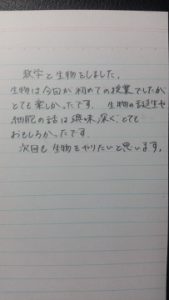 数学と生物をしました。
生物は今回が初めての授業でしたが
とても楽しかったです。生物の誕生や
細胞の話は興味深く、とても
おもしろかったです。
次回も生物をやりたいと思います。